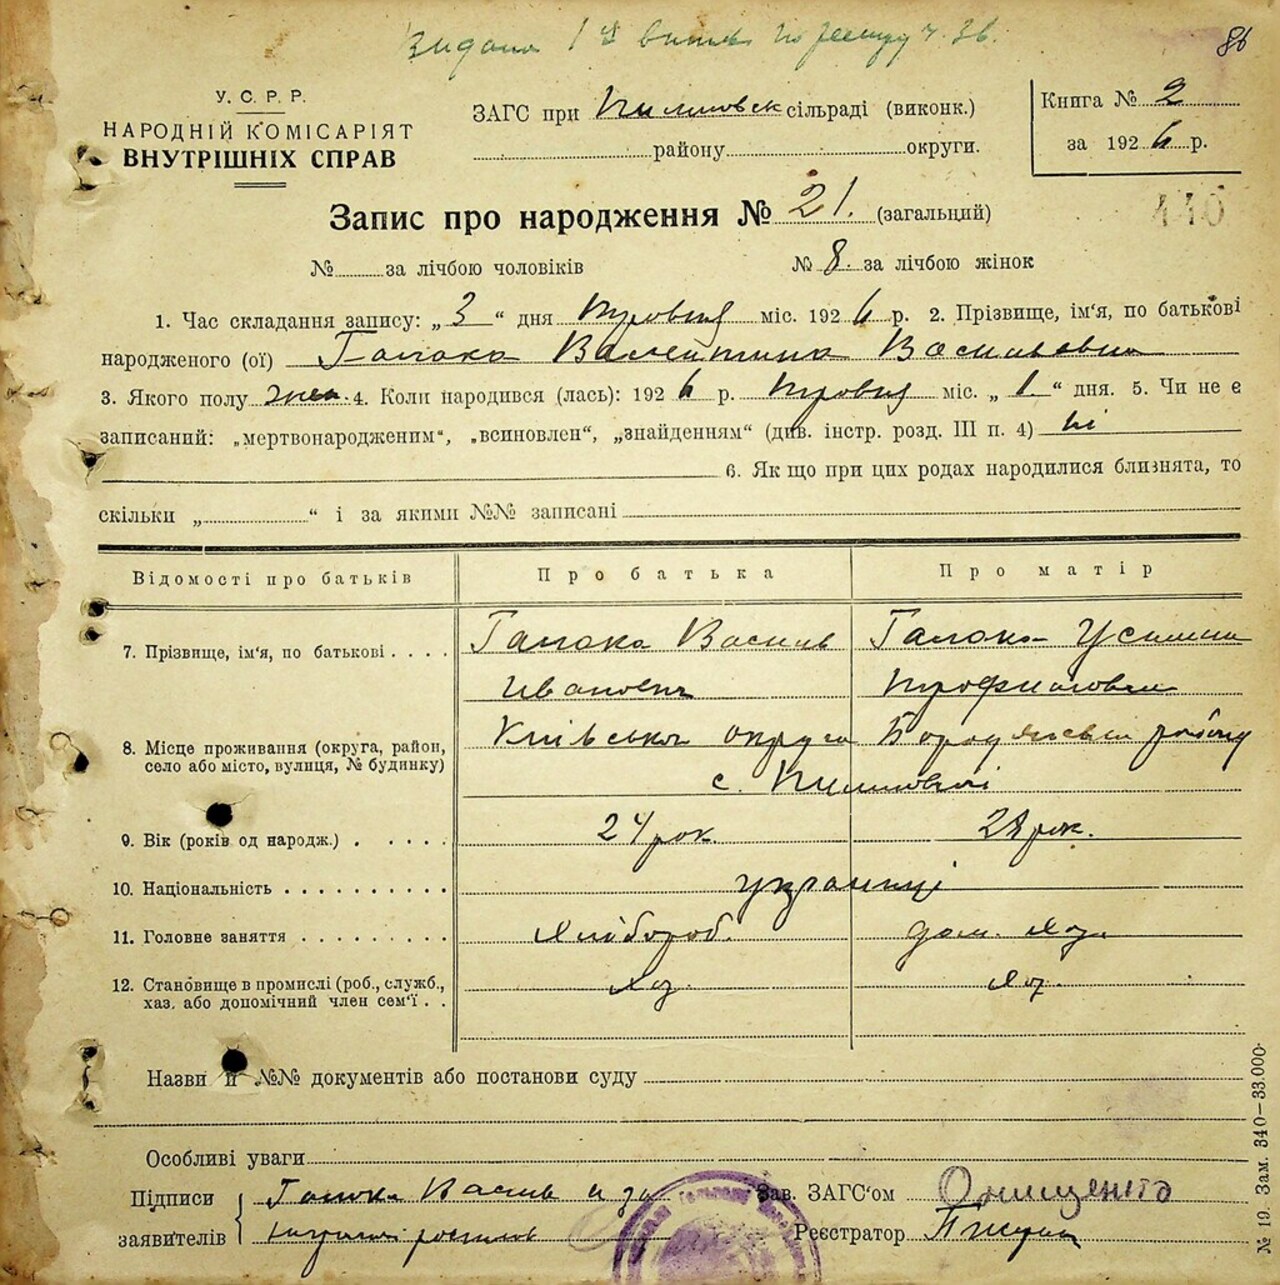 Видано 1й по реєстру ч. 36.
86
У. С. Р. Р.
НАРОДНІЙ КОМІСАРІЯТ
ВНУТРІШНІХ СПРАВ
ЗАГС при сільраді (виконк.)
району округи.
Книга № 2
за 1926 р.
Запис про народження № 21. (загальний)
440
№ за лічбою чоловіків № 8. за лічбою жінок
1. Час складання запису: „3“ дня міс. 1926 р. 2. Прізвище, ім'я, по батькові
народженого (ої) Галока Валентина Василівна
3. Якого полу жен. 4. Коли народився (лась): 1926 р. міс. „1.“ дня. 5. Чи не є
записаний: „мертвонародженим“, „всиновлен“, „знайденням“ (див. інстр. розд. III п. 4) ні
6. Як що при цих родах народилися близнята, то
скільки „ “ і за якими №№ записані
Відомості про батьків Про батька Про матір
7. Прізвище, ім'я, по батькові Галока Василь Галока
Иванович
8. Місце проживання (округа, район, село або місто, вулиця, № будинку) Київська округа Бородянський району
с.
9. Вік (років од народж.) 24 рок. 28 рок.
10. Національність українці
11. Головне заняття хлібороб. дом. хоз.
12. Становище в промислі (роб., служб., хаз. або допомічний член сем'ї хоз. хоз.
Назви й №№ документів або постанови суду
Особливі уваги
Підписи заявителів Галока Василь и за
Зав. ЗАГС'ом Онищенко
Реєстратор
№ 19. Зам. 340–33.000